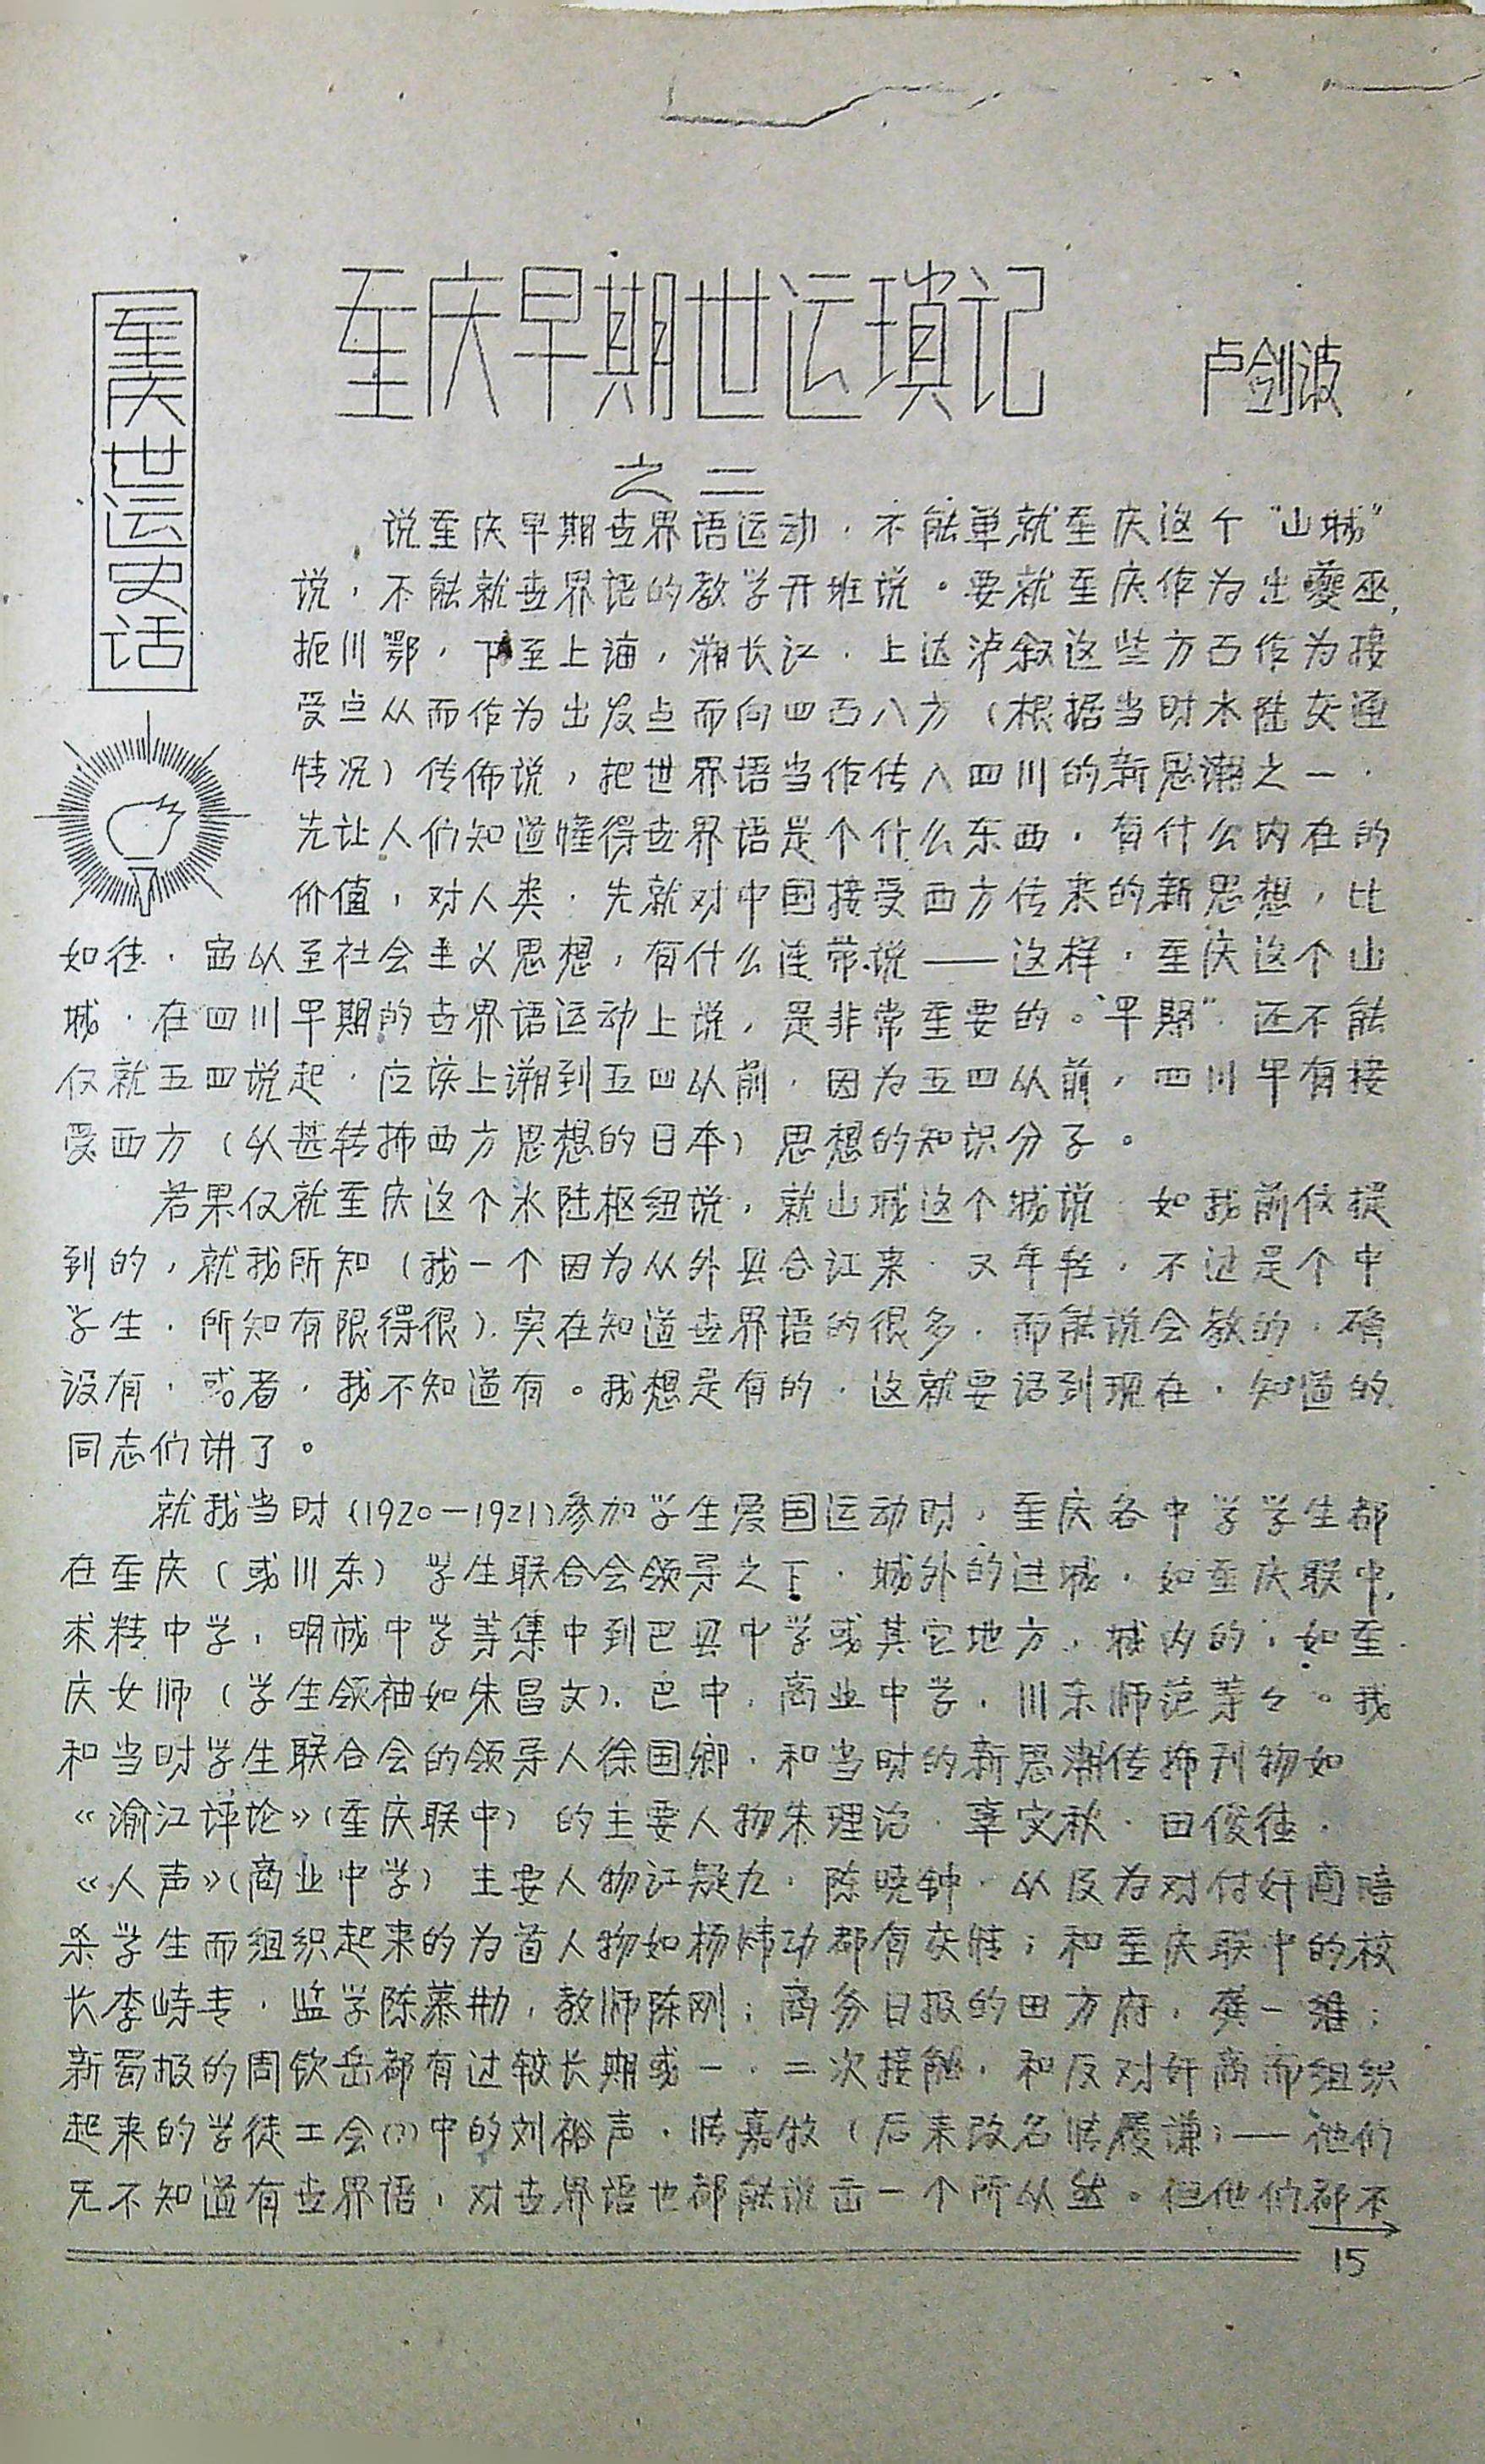 重庆世运史话
重庆早期世运琐记
卢剑波
之二
说重庆早期世界语运动，不能单就重庆这个“山城”
说，不能就世界语的教学开班说。要就重庆作为出夔巫，
扼川鄂，下至上海，溯长江，上达泸叙这些方面作为接
受点从而作为出发点而向四面八方（根据当时水陆交通
情况）传佈说，把世界语当作传入四川的新思潮之一，
先让人们知道懂得世界语是个什么东西，有什么内在的
价值，对人类，先就对中国接受西方传来的新思想，比
如往，以至社会主义思想，有什么连带说——这样，重庆这个山
城，在四川早期的世界语运动上说，是非常重要的。“早期”还不能
仅就五四说起，应该上溯到五四以前，因为五四以前，四川早有接
受西方（从甚转播西方思想的日本）思想的知识分子。
若果仅就重庆这个水陆枢纽说，就山城这个城说，如我前仅提
到的，就我所知（我一个因为从外县合江来，又年轻，不过是个中
学生，所知有限得很），实在知道世界语的很多，而能说会教的，确
没有，或者，我不知道有。我想是有的，这就要活到现在，知道的
同志们讲了。
就我当时（1920—1921）参加学生爱国运动时，重庆各中学学生都
在重庆（或川东）学生联合会领导之下，城外的进城，如重庆联中，
求精中学，明诚中学等集中到巴县中学或其它地方，城内的，如重
庆女师（学生领袖如朱昌文），巴中，商业中学，川东师范等々。我
和当时学生联合会的领导人徐国卿，和当时的新思潮传播刊物如
《渝江评论》（重庆联中）的主要人物朱理治，辜文秋，田俊往，
《人声》（商业中学）主要人物江疑九，陈晓钟，以及为对付奸商暗
杀学生而组织起来的为首人物如杨炜功都有交情；和重庆联中的校
长李峙专，监学陈慕勤，教师陈刚；商务日报的田方府，龚一维；
新蜀报的周钦岳都有过较长期或一、二次接触，和反对奸商而组织
起来的学徒工会（?）中的刘裕声，陈嘉牧（后来改名陈履谦）——他们
无不知道有世界语，对世界语也都能说出一个所以然。但他们都不
15